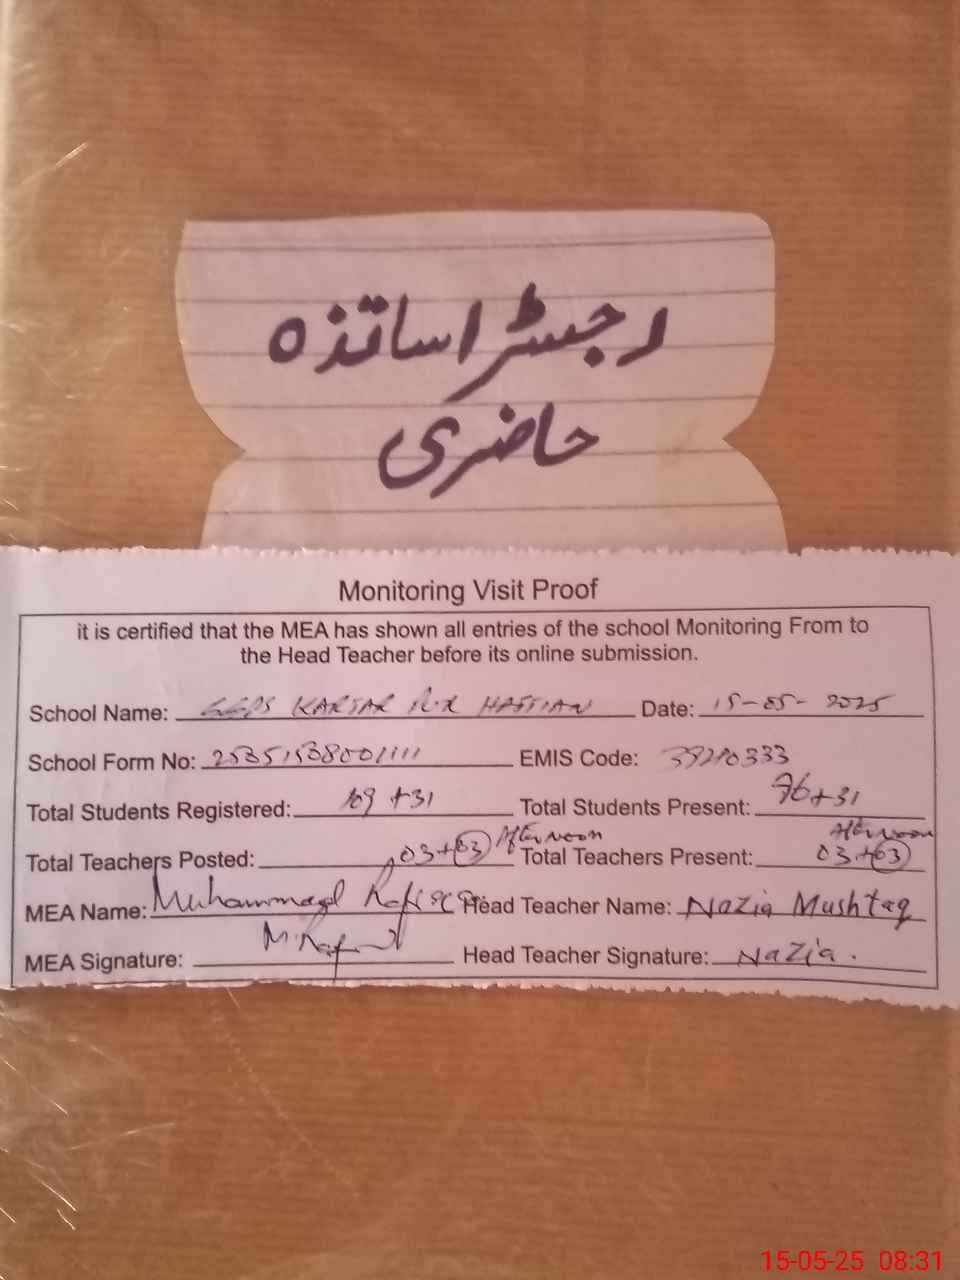 رجسٹر اساتذہ
حاضری
Monitoring Visit Proof
it is certified that the MEA has shown all entries of the school Monitoring From to
the Head Teacher before its online submission.
School Name: GGPS KARSAR HASSIAN Date: 15-05-2025
School Form No: EMIS Code: 39210333
Total Students Registered: 109 +31 Total Students Present: 76+31
Total Teachers Posted: 03+03 After noon Total Teachers Present: 03+03 After noon
MEA Name: Muhammad Head Teacher Name: Nazia Mushtaq
MEA Signature: Head Teacher Signature: Nazia.
15-05-25 08:31